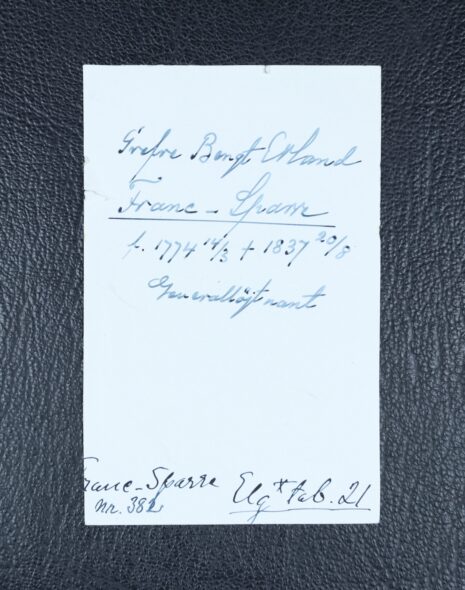 Grefve Bengt Erland
Franc-Sparre
f. 1774 14/3 + 1837 20/8
Generallöjtnant
Franc-Sparre
Nr. 382
Elg x tab. 21